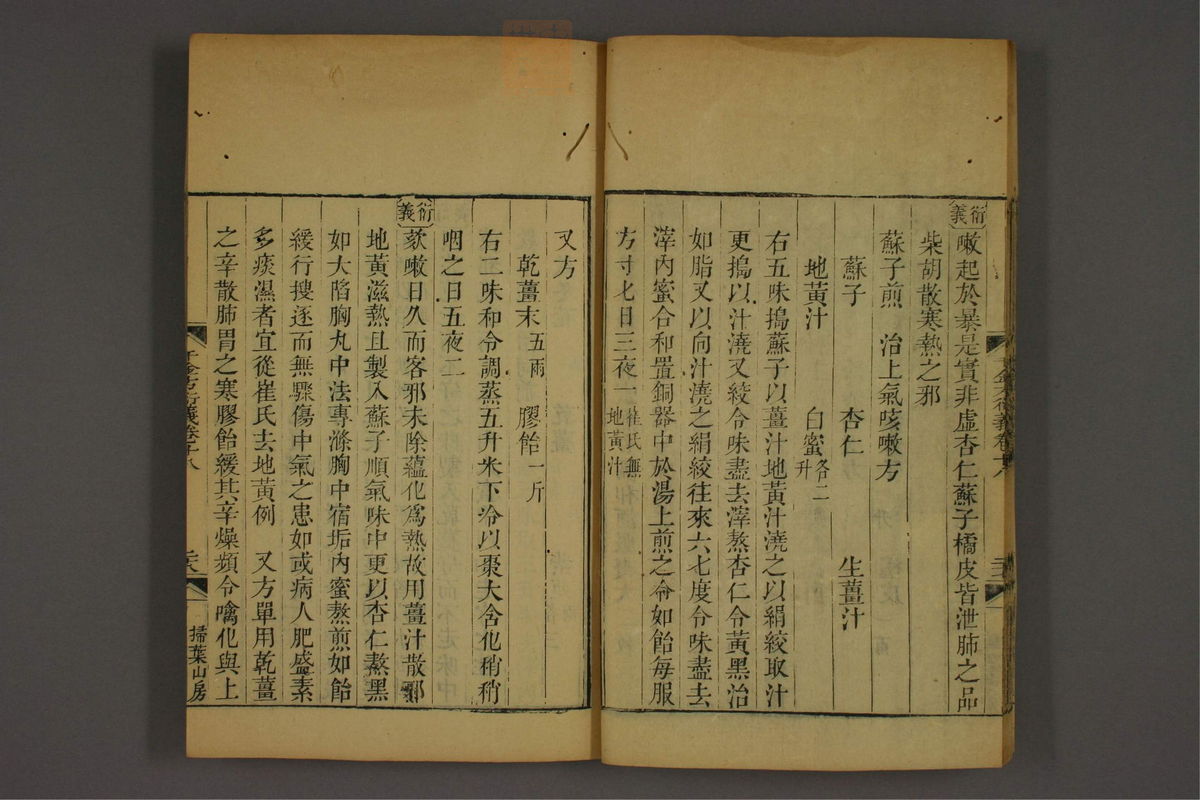 衍義 嗽起於暴是實非虛杏仁蘇子橘皮皆泄肺之品
柴胡散寒熱之邪
蘇子煎 治上氣咳嗽方
蘇子 杏仁 生薑汁
地黃汁 白蜜各二升
右五味搗蘇子以薑汁地黃汁澆之以絹絞取汁
更搗以汁澆又絞令味盡去滓熬杏仁令黃黑治
如脂又以向汁澆之絹絞往來六七度令味盡去
滓內蜜合和置銅器中於湯上煎之令如飴每服
方寸匕日三夜一崔氏無地黃汁
又方
乾薑末五兩 膠飴一斤
右二味和令調蒸五升米下冷以棗大含化稍稍
咽之日五夜二
衍義 欬嗽日久而客邪未除蘊化爲熱故用薑汁散邪
地黃滋熱且製入蘇子順氣味中更以杏仁熬黑
如大陷胸丸中法專滌胸中宿垢內蜜熬煎如飴
緩行搜逐而無驟傷中氣之患如或病人肥盛素
多痰濕者宜從崔氏去地黃例 又方單用乾薑
之辛散肺胃之寒膠飴緩其辛燥頻令噙化與上
千金方衍義卷十八
掃葉山房